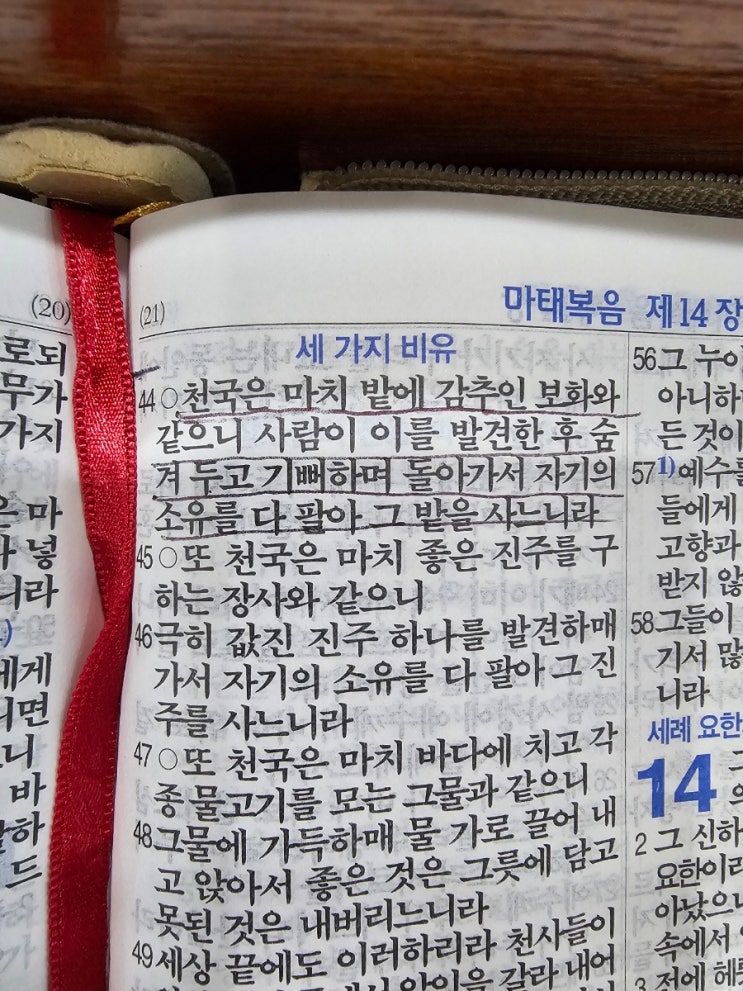 (20)
로되
무가
가지
은 마
넣
니라
에게
니면
니
바
하
드
(21)
마태복음 제14장
세 가지 비유
44 ○천국은 마치 밭에 감추인 보화와
같으니 사람이 이를 발견한 후 숨
겨 두고 기뻐하며 돌아가서 자기의
소유를 다 팔아 그 밭을 사느니라
45 ○또 천국은 마치 좋은 진주를 구
하는 장사와 같으니
46 극히 값진 진주 하나를 발견하매
가서 자기의 소유를 다 팔아 그 진
주를 사느니라
47 ○또 천국은 마치 바다에 치고 각
종 물고기를 모는 그물과 같으니
48 그물에 가득하매 물 가로 끌어 내
고 앉아서 좋은 것은 그릇에 담고
못된 것은 내버리느니라
49 세상 끝에도 이러하리라 천사들이
와서 의인 중에서 악인을 갈라 내어
56 그 누이
아니하
든 것이
57 1)예수를
들에게
고향과
받지 않
58 그들이
기서 많
니라
세례 요한
14 그
의
2 그 신하
요한이라
아났으
속에서
3 전에 헤롯